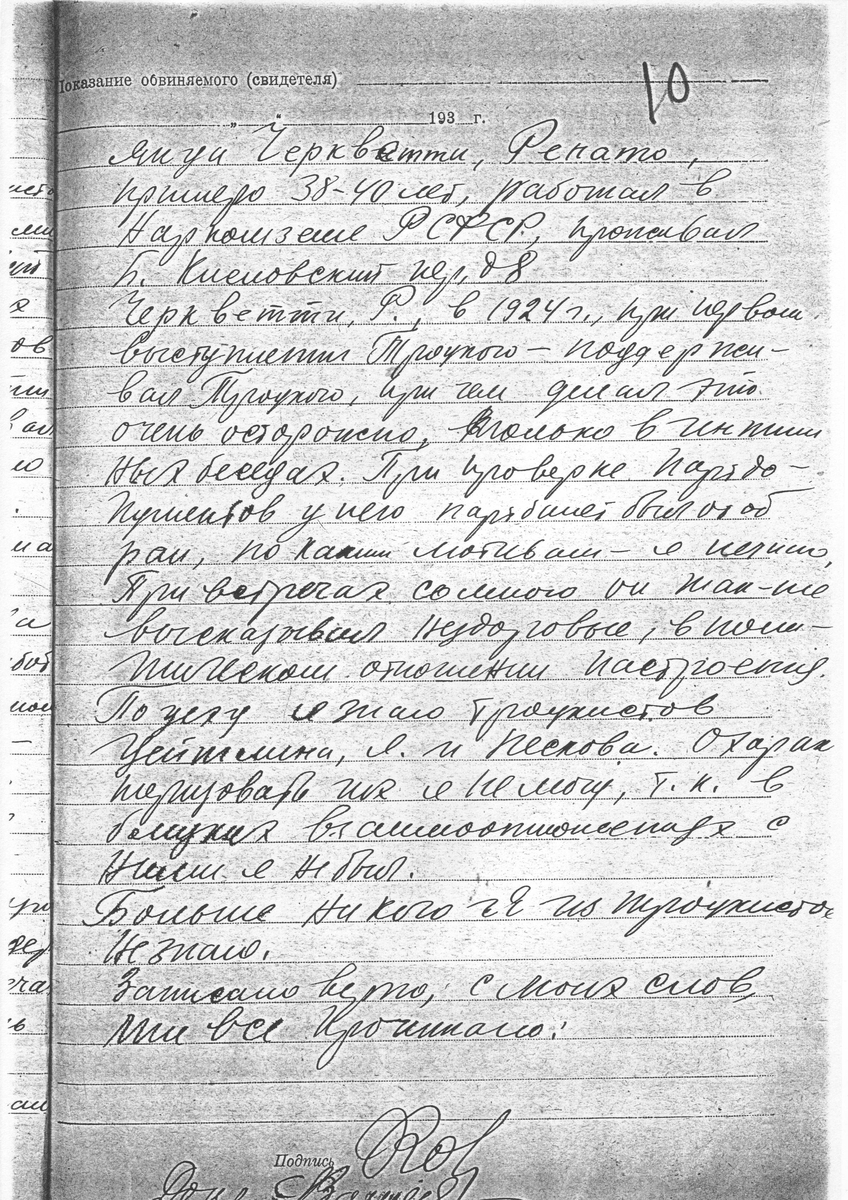 Показание обвиняемого (свидетеля)
10
„ “ 193 г.
лица Черкветти, Ренато,
примерно 38-40 лет, работал в
Наркомземе РСФСР, проживал
Б. Кисловский пер, д 8
Черкветти, Р., в 1924 г., при первом
выступлении Троцкого – поддержи-
вал Троцкого, при чем делал это
очень осторожно, только в интим
ных беседах. При проверке партдо-
кументов у него партбилет был отоб
ран, по каким мотивам – я не знаю,
При встречах со мною он так-же
высказывал нездоровые, в поли-
тическом отношении настроения.
По цеху я знаю троцкистов
Цейтлина, Я. и Пескова. Охарак
теризовать их я не могу, т.к. в
близких взаимоотношениях с
ними я не был.
Больше никого из троцкистов
не знаю.
Записано верно, с моих слов,
мне все прочитано:
Подпись
Доп.